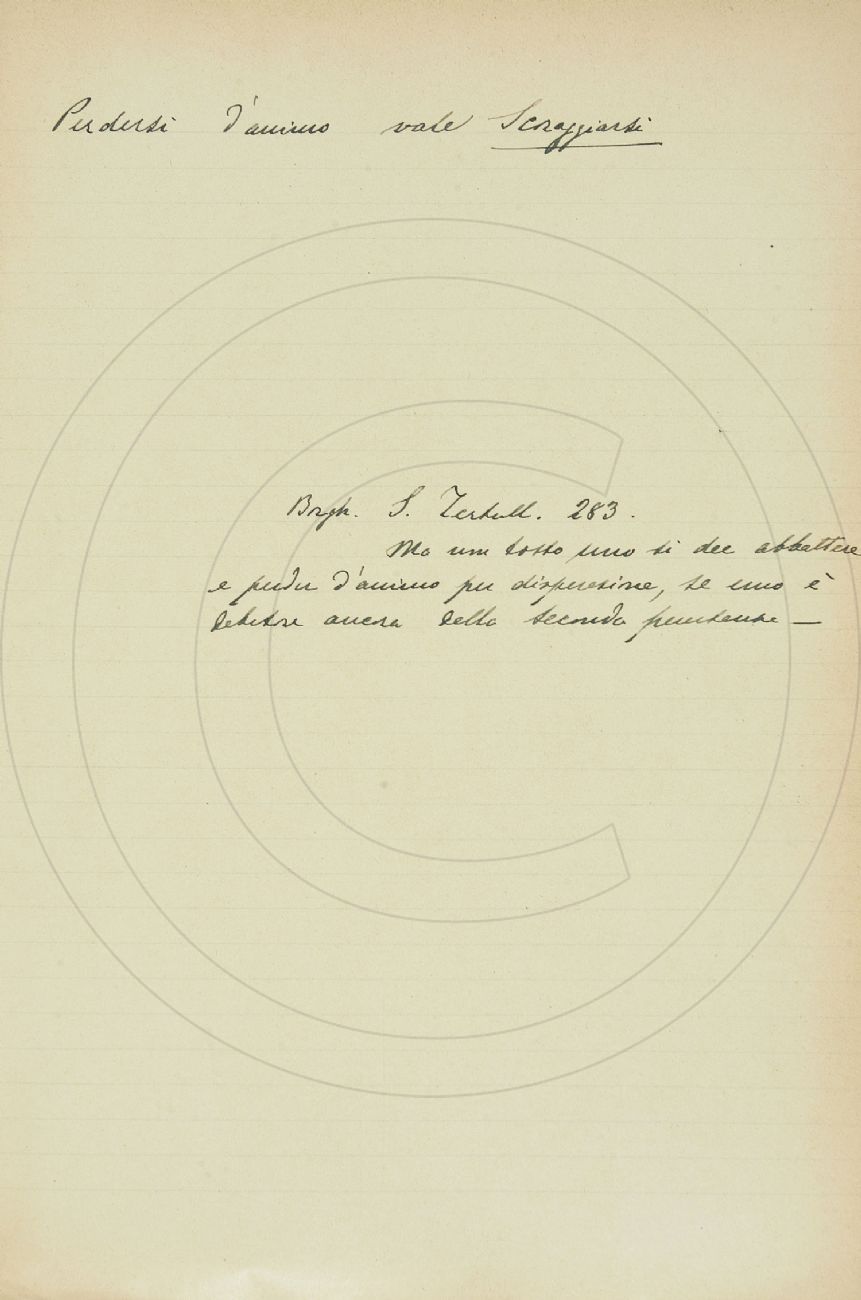 Perdersi d'animo vale Scoraggiarsi
Borgh. S. Tertull. 283.
Ma non tosto uno si dee abbattere
e perder d'animo per disperazione, se uno è
debitore ancora della seconda penitenza —